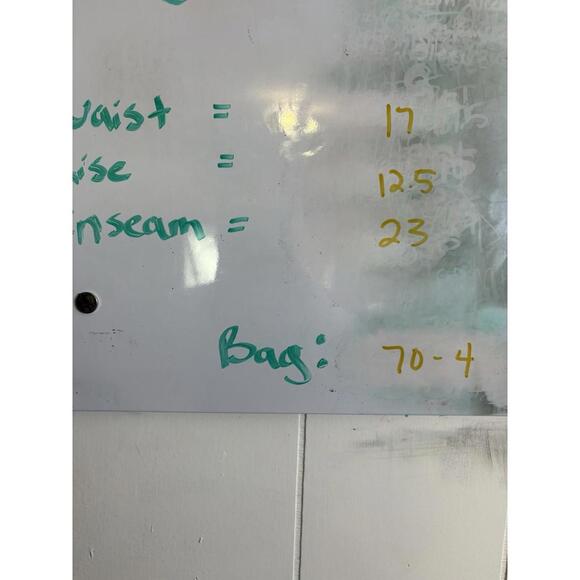 Waist = 17
ise = 12.5
nseam = 23
Bag: 70-4